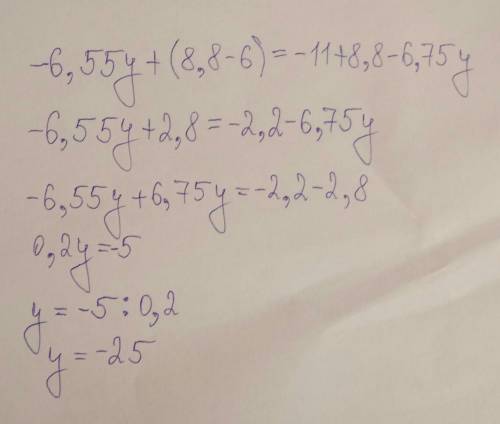 -6,55y+(8,8-6)=-11+8,8-6,75y
-6,55y+2,8=-2,2-6,75y
-6,55y+6,75y=-2,2-2,8
0,2y=-5
y=-5:0,2
y=-25